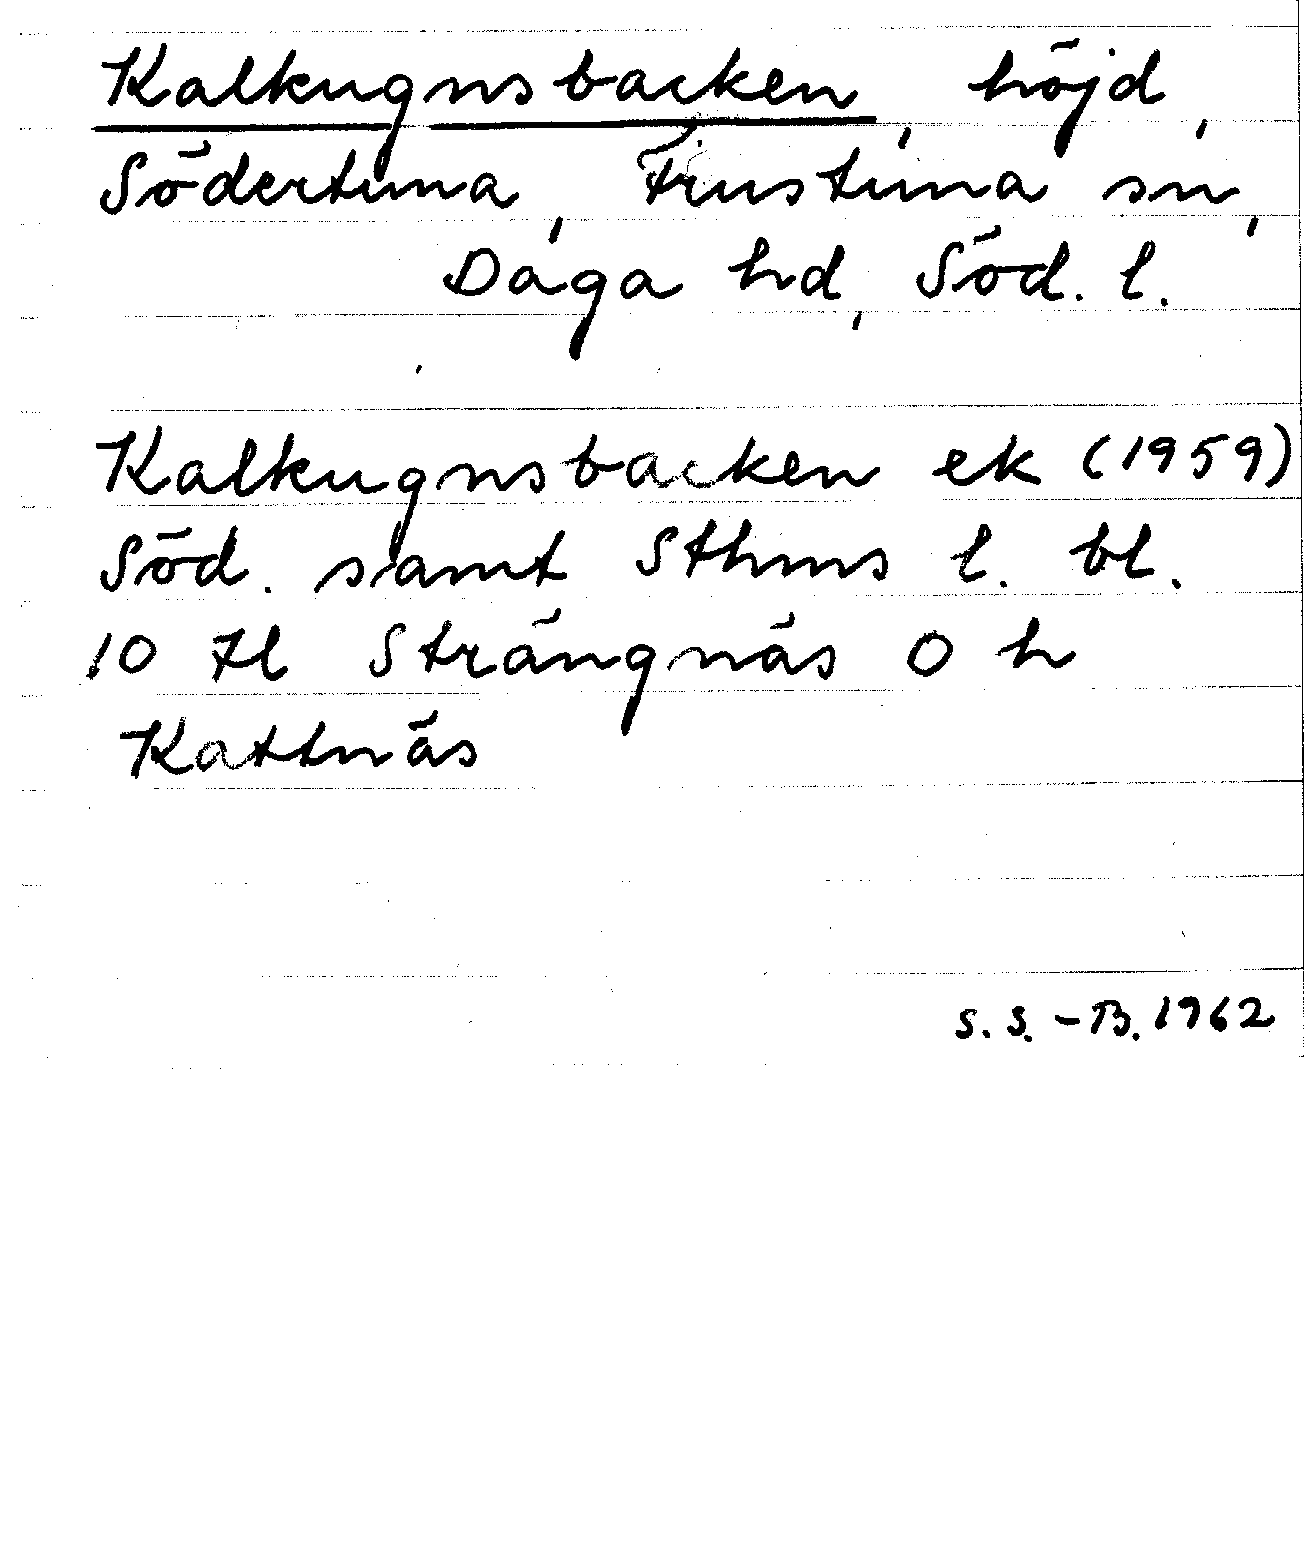 Kalkugnsbacken, höjd,
Södertuna, Frustuna sn,
Daga hd, Söd. l.
Kalkugnsbacken ek (1959)
Söd. samt Sthms l. bl.
10 Il Strängnäs O h
Kattnäs
S. S. - B. 1962